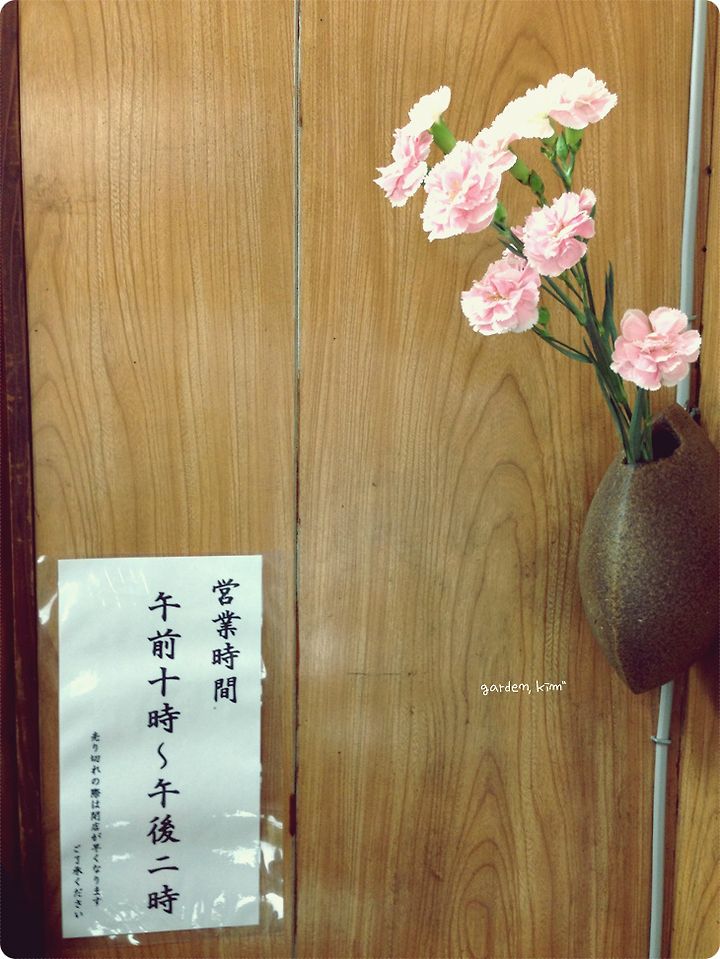 営業時間
午前十時～午後二時
売り切れの際は閉店が早くなります
ご了承ください
garden, kim"